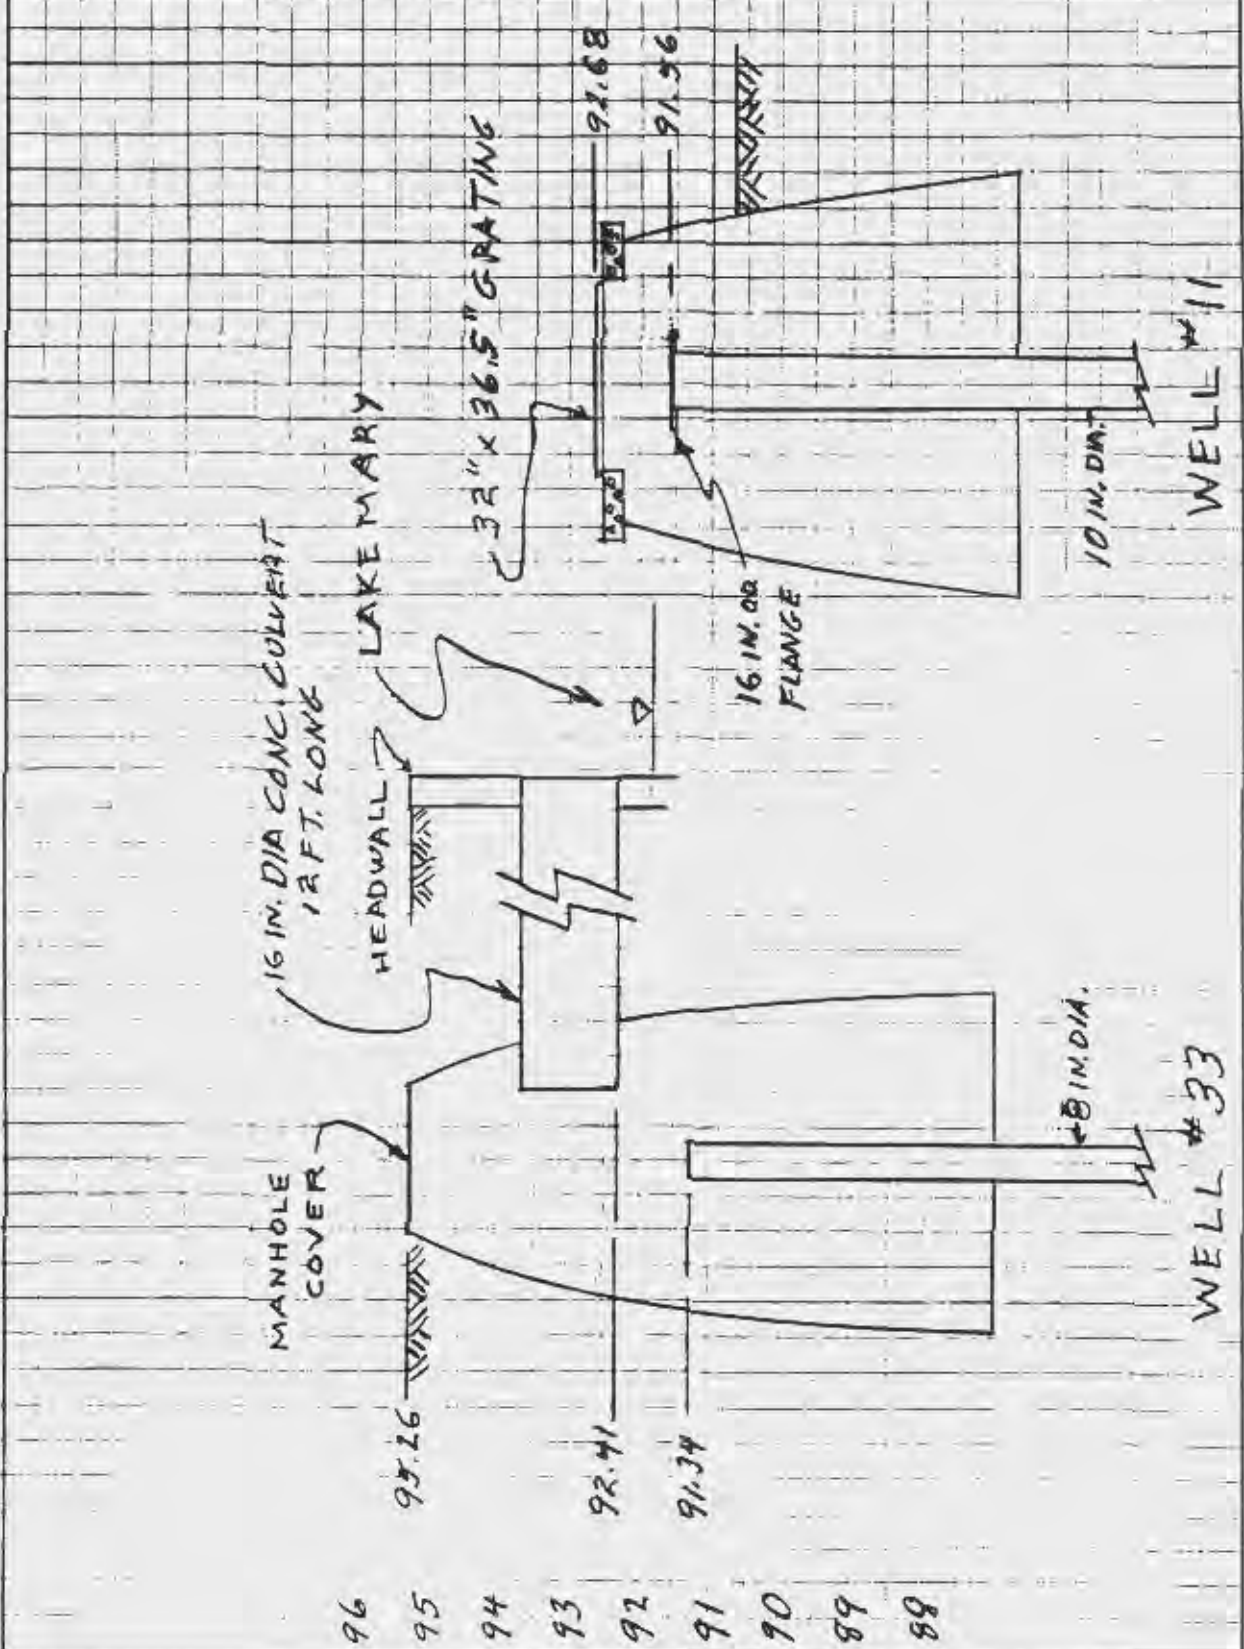 96
95
94
93
92
91
90
89
88
95.26
92.41
91.34
MANHOLE
COVER
16 IN. DIA CONC. CULVERT
12 FT. LONG
HEADWALL
LAKE MARY
8 IN. DIA.
WELL #33
32" x 36.5" GRATING
92.68
91.56
16 IN. OD
FLANGE
10 IN. DIA.
WELL #11